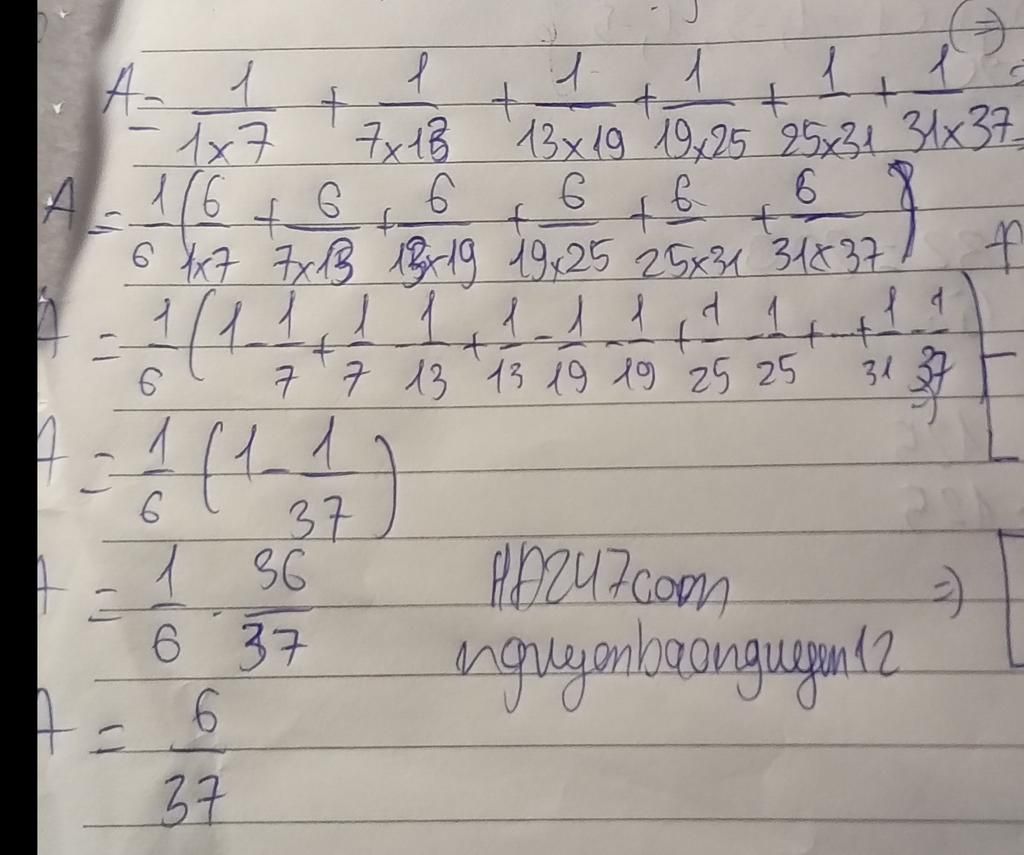 A = 1/(1x7) + 1/(7x13) + 1/(13x19) + 1/(19x25) + 1/(25x31) + 1/(31x37)
A = 1/6 (6/(1x7) + 6/(7x13) + 6/(13x19) + 6/(19x25) + 6/(25x31) + 6/(31x37))
A = 1/6 (1 - 1/7 + 1/7 - 1/13 + 1/13 - 1/19 - 1/19 + 1/25 - 1/25 + - + 1/31 - 1/37)
A = 1/6 (1 - 1/37)
A = 1/6 . 36/37
HD247com =>
nguyenbaonguyen12
A = 6/37